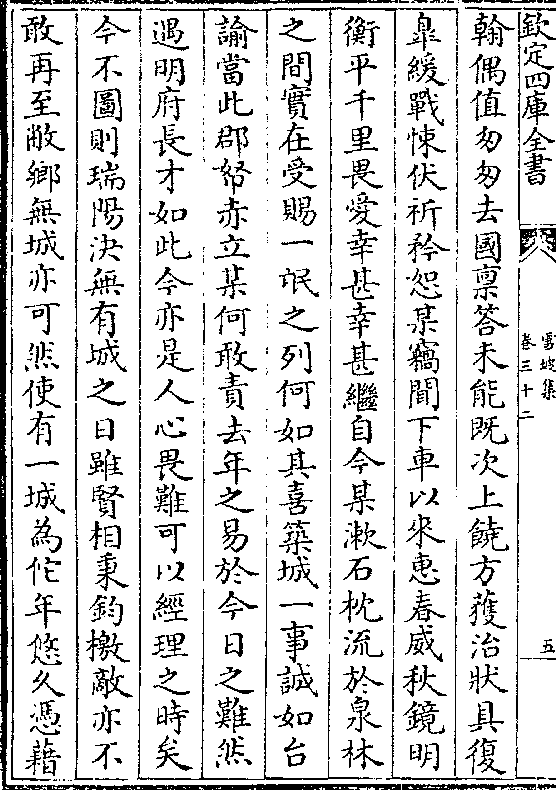 欽定四庫全書
雪坡集
卷三十二
五
翰偶值匆匆去國稟答未能既次上饒方獲治狀具復
臯緩戰悚伏祈矜恕某竊聞下車以來惠春威秋鏡明
衡平千里畏愛幸甚幸甚繼自今某漱石枕流於泉林
之間實在受賜一氓之列何如其喜築城一事誠如台
諭當此郡帑赤立某何敢責去年之易於今日之難然
遇明府長才如此今亦是人心畏難可以經理之時矣
今不圖則瑞陽決無有城之日雖賢相秉鈞檄敵亦不
敢再至敝鄉無城亦可然使有一城為佗年悠久憑藉